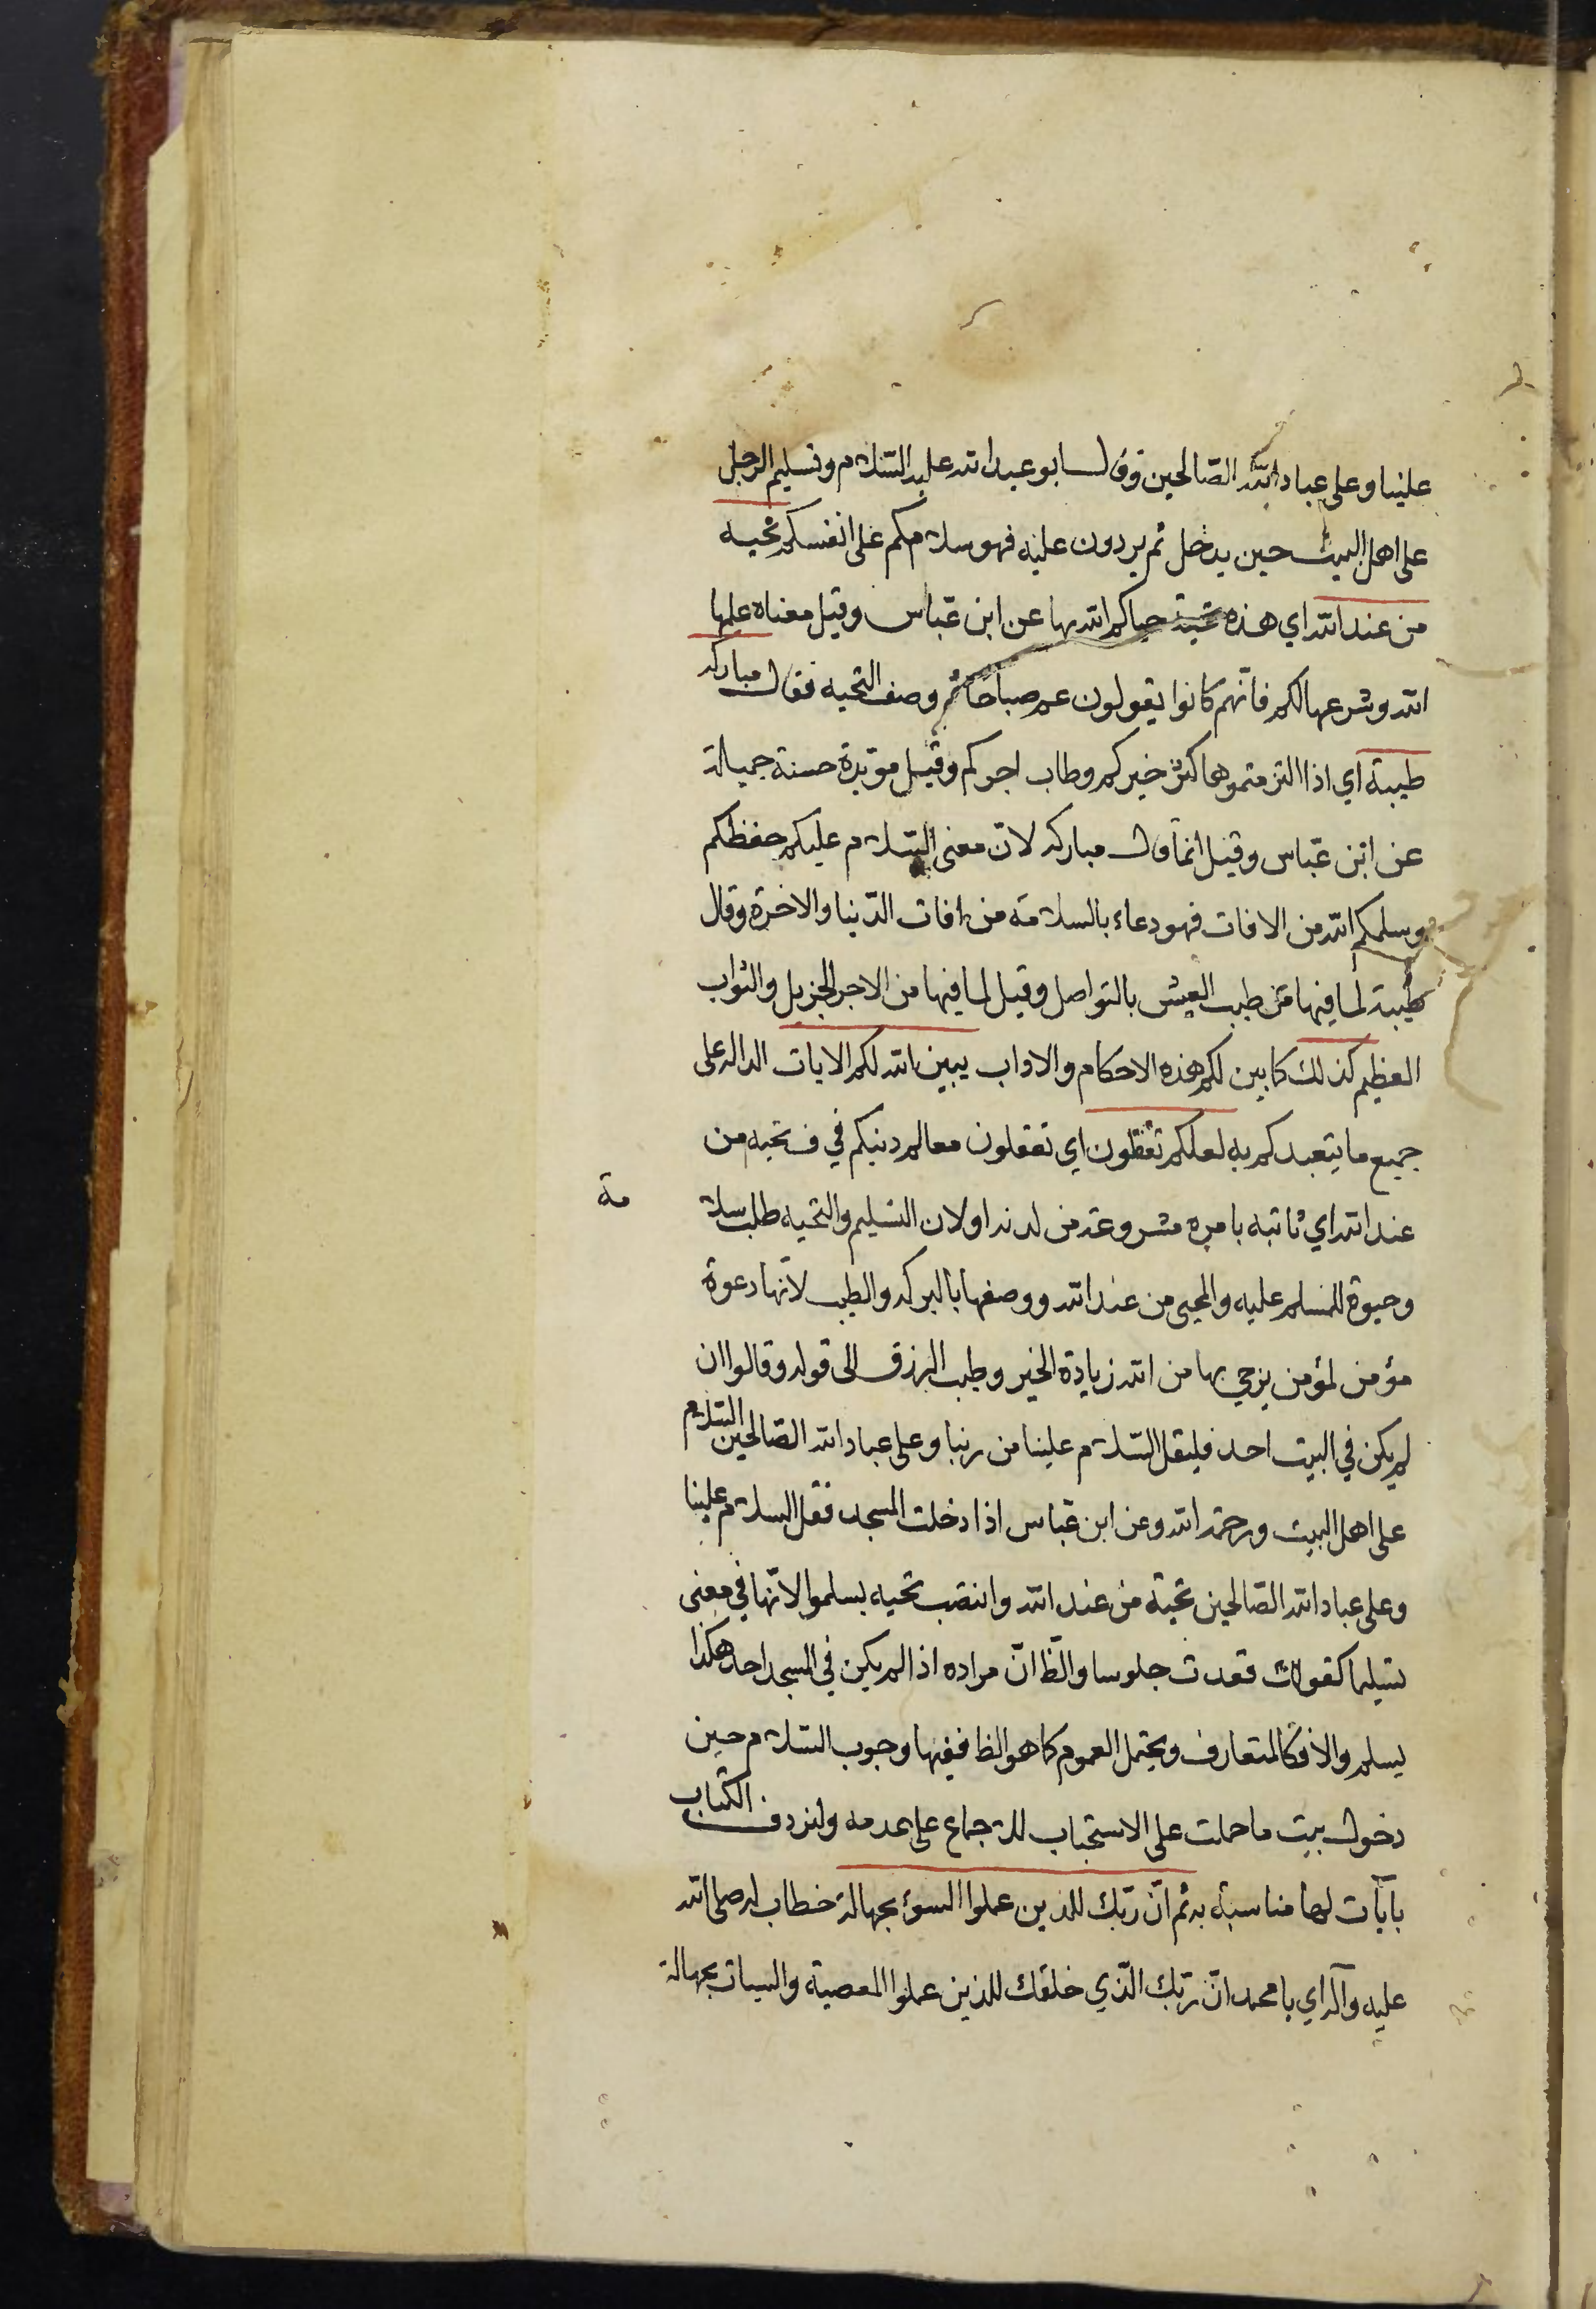 علينا وعلى عباد الله الصّالحين وقال ابو عبد الله عليه السّلام هو تسليم الرجل
على اهل البيت حين يدخل ثم يردون عليه فهو سلامكم على انفسكم تحيه
من عند الله اي هذه تحية حياكم الله بها عن ابن عبّاس وقيل معناه علمها
الله وشرعها لكم فانّهم كانوا يقولون عم صباحًا ثم وصف التحيه فقال مباركه
طيبة اي اذا التزمتموها كثر خيركم وطاب اجركم وقيل مؤبدة حسنة جميلة
عن ابن عبّاس وقيل انما قال مباركه لانّ معنى السّلام عليكم حفظكم
وسلمكم الله من الافات فهو دعاء بالسلامة من افات الدّنيا والاخرة وقال
طيّبة لما فيها من طيب العيش بالتواصل وقيل لما فيها من الاجر الجزيل والثواب
العظيم كذلك كما بين لكم هذه الاحكام والاداب يبين الله لكم الايات الداله على
جميع ما يتعبدكم به لعلكم تعقلون اي تعقلون معالم دينكم في ف تحيه من
عند الله اي ثابته بامره مشروعة من لدنه او لان التسليم والتحيه طلب سلا مة
وحيوة للمسلم عليه والمحيى من عند الله ووصفها بالبركه والطيب لانّها دعوة
مؤمن لمؤمن يرجي بها من الله زيادة الخير وطيب الرزق الى قوله وقالوا ان
لم يكن في البيت احد فليقل السّلام علينا من ربنا وعلى عباد الله الصّالحين السّلام
على اهل البيت ورحمة الله وعن ابن عبّاس اذا دخلت المسجد فقل السلام علينا
وعلى عباد الله الصّالحين تحيّة من عند الله وانتصب تحيه بسلموا لانّها في معنى
تسليما كقولك قعدت جلوسا والظّ انّ مراده اذا لم يكن في المسجد احد هكذا
يسلم والا فكالمتعارف ويحتمل العموم كما هو الظ ففيها وجوب السّلام حين
دخول بيت ما حملت على الاستحباب للاجماع على عدمه ولنردف الكتاب
بآيات لها مناسبة به ثم انّ ربّك للذين عملوا السوء بجهالة خطاب له صلى الله
عليه وآله اي يا محمد انّ ربّك الّذي خلقك للذين عملوا المعصية والسيات بجهالة